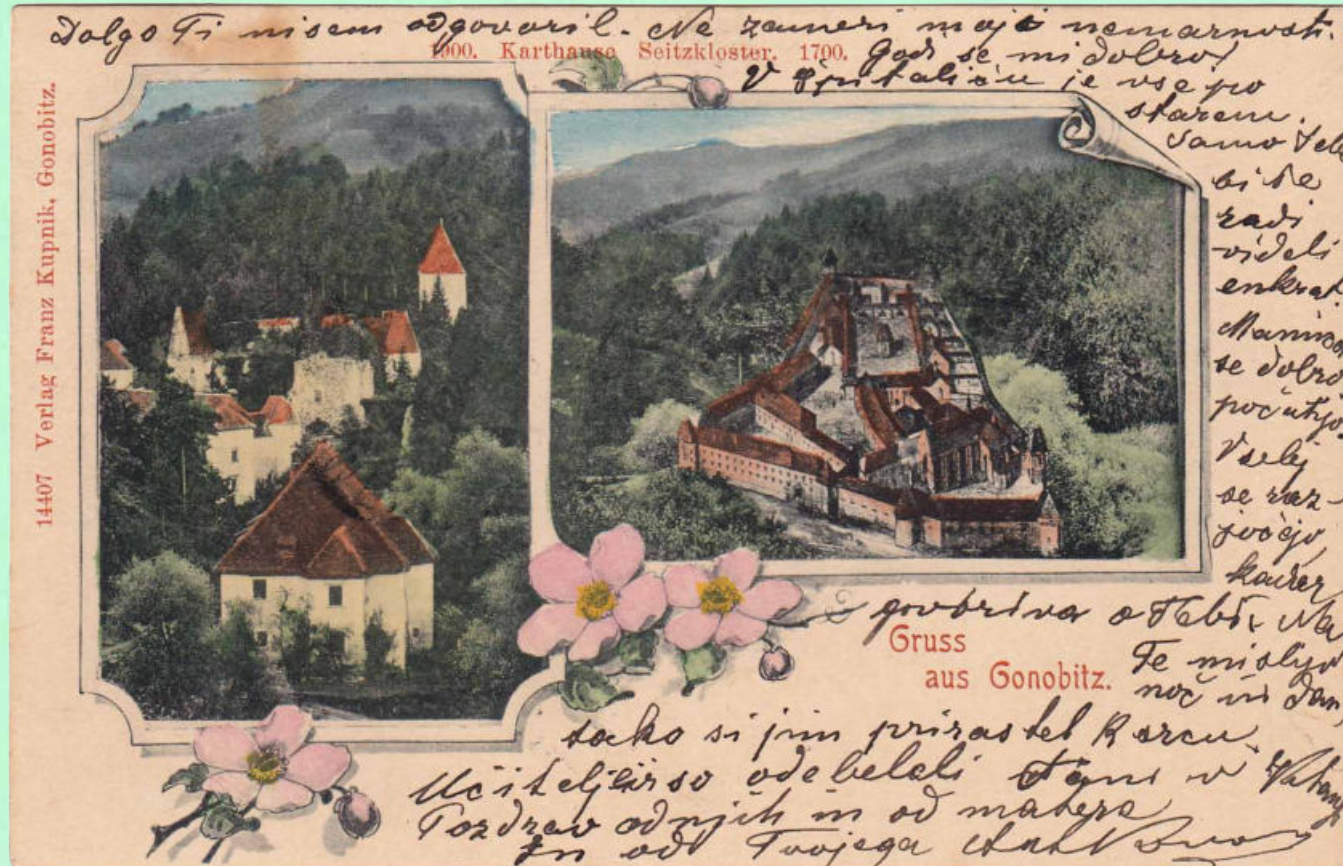 Dolgo Ti nisem odgovoril. Ne zameri moji nemarnosti.
1900. Karthause Seitzkloster. 1700.
Godi se mi dobro!
V Špitaliču je vse po
starem.
Samo Tebe
bi še
radi
videli
enkrat
se dobro
počutijo
Vselej
se raz-
jočejo
kadar
govoriva o Tebi. Na
Te mislijo
noč in dan
tako si jim prirastel k srcu.
Učiteljevi so odebeleli
Pozdrav od njih in od matere
in od Tvojega
Gruss
aus Gonobitz.
14407 Verlag Franz Kupnik, Gonobitz.